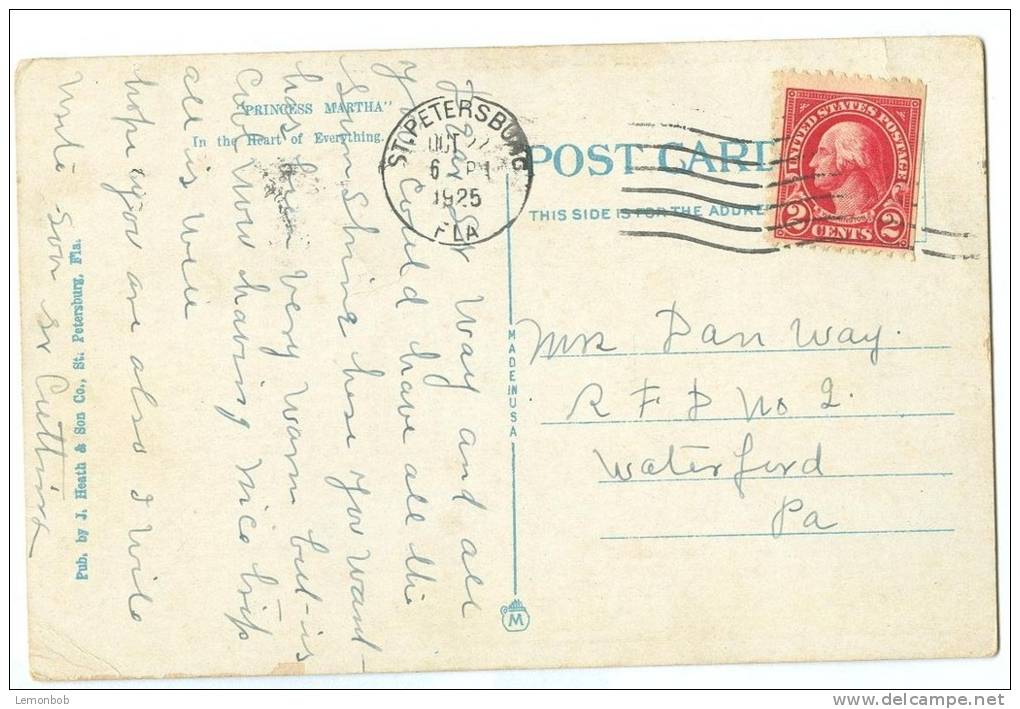 "PRINCESS MARTHA"
In the Heart of Everything.
Way and all
you Could have all the
Sun Shine here you Want
has been very Warm but is
Cool now having nice trip
all is well
hope you are also I Will
write soon
Cutting
Pub. by J. Heath & Son Co., St. Petersburg, Fla.
ST. PETERSBURG
OCT 22
6 PM
1925
FLA
POST CARD
THIS SIDE IS FOR THE ADDRE
UNITED STATES POSTAGE
WASHINGTON
2 CENTS 2
MADE IN USA
M
Mrs Dan Way.
R F D No 2.
Waterford
Pa
Lemonbob
www.delcampe.net